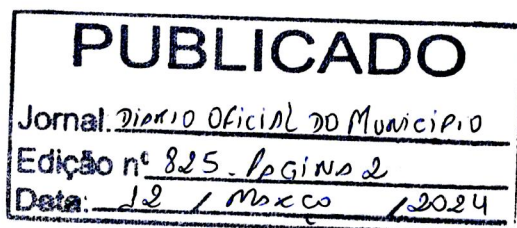 PUBLICADO
Jornal: DIARIO OFICIAL DO MUNICIPIO
Edição nº 825. PAGINA 2
Data: 12 / MARÇO / 2024